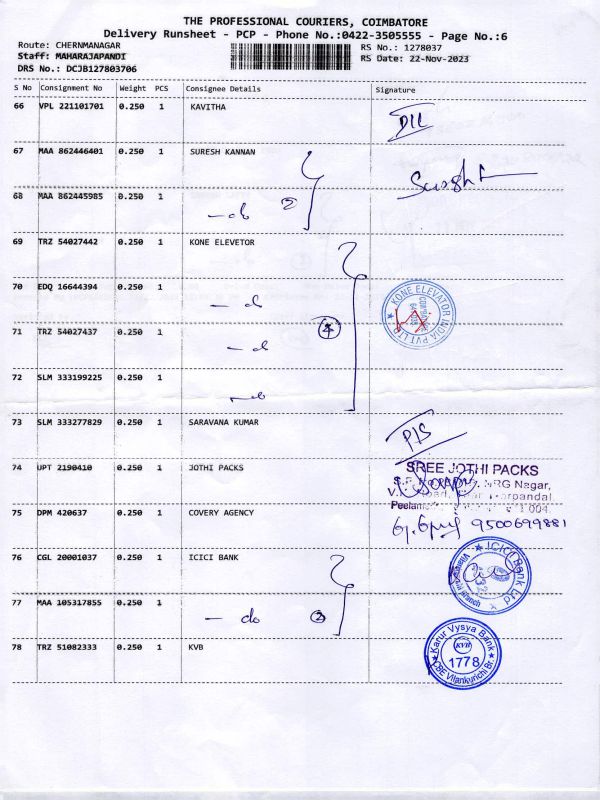 THE PROFESSIONAL COURIERS, COIMBATORE
Delivery Runsheet - PCP - Phone No.:0422-3505555 - Page No.:6
Route: CHERNMANAGAR
RS No.: 1278037
Staff: MAHARAJAPANDI
RS Date: 22-Nov-2023
DRS No.: DCJB127803706
S No Consignment No Weight PCS Consignee Details Signature
66 VPL 221101701 0.250 1 KAVITHA
67 MAA 862446401 0.250 1 SURESH KANNAN
68 MAA 862445985 0.250 1
do 2
69 TRZ 54027442 0.250 1 KONE ELEVETOR
70 EDQ 16644394 0.250 1
do
KONE ELEVATOR INDIA PVT LTD
71 TRZ 54027437 0.250 1
do 4
72 SLM 333199225 0.250 1
do
73 SLM 333277829 0.250 1 SARAVANA KUMAR
74 UPT 2190410 0.250 1 JOTHI PACKS
SREE JOTHI PACKS
NRG Nagar,
75 DPM 420637 0.250 1 COVERY AGENCY
9500699881
76 CGL 20001037 0.250 1 ICICI BANK
ICICI Bank Ltd
77 MAA 105317855 0.250 1
do 2
78 TRZ 51082333 0.250 1 KVB
Karur Vysya Bank
KVB
1778
CBE Vilankurichi Br.